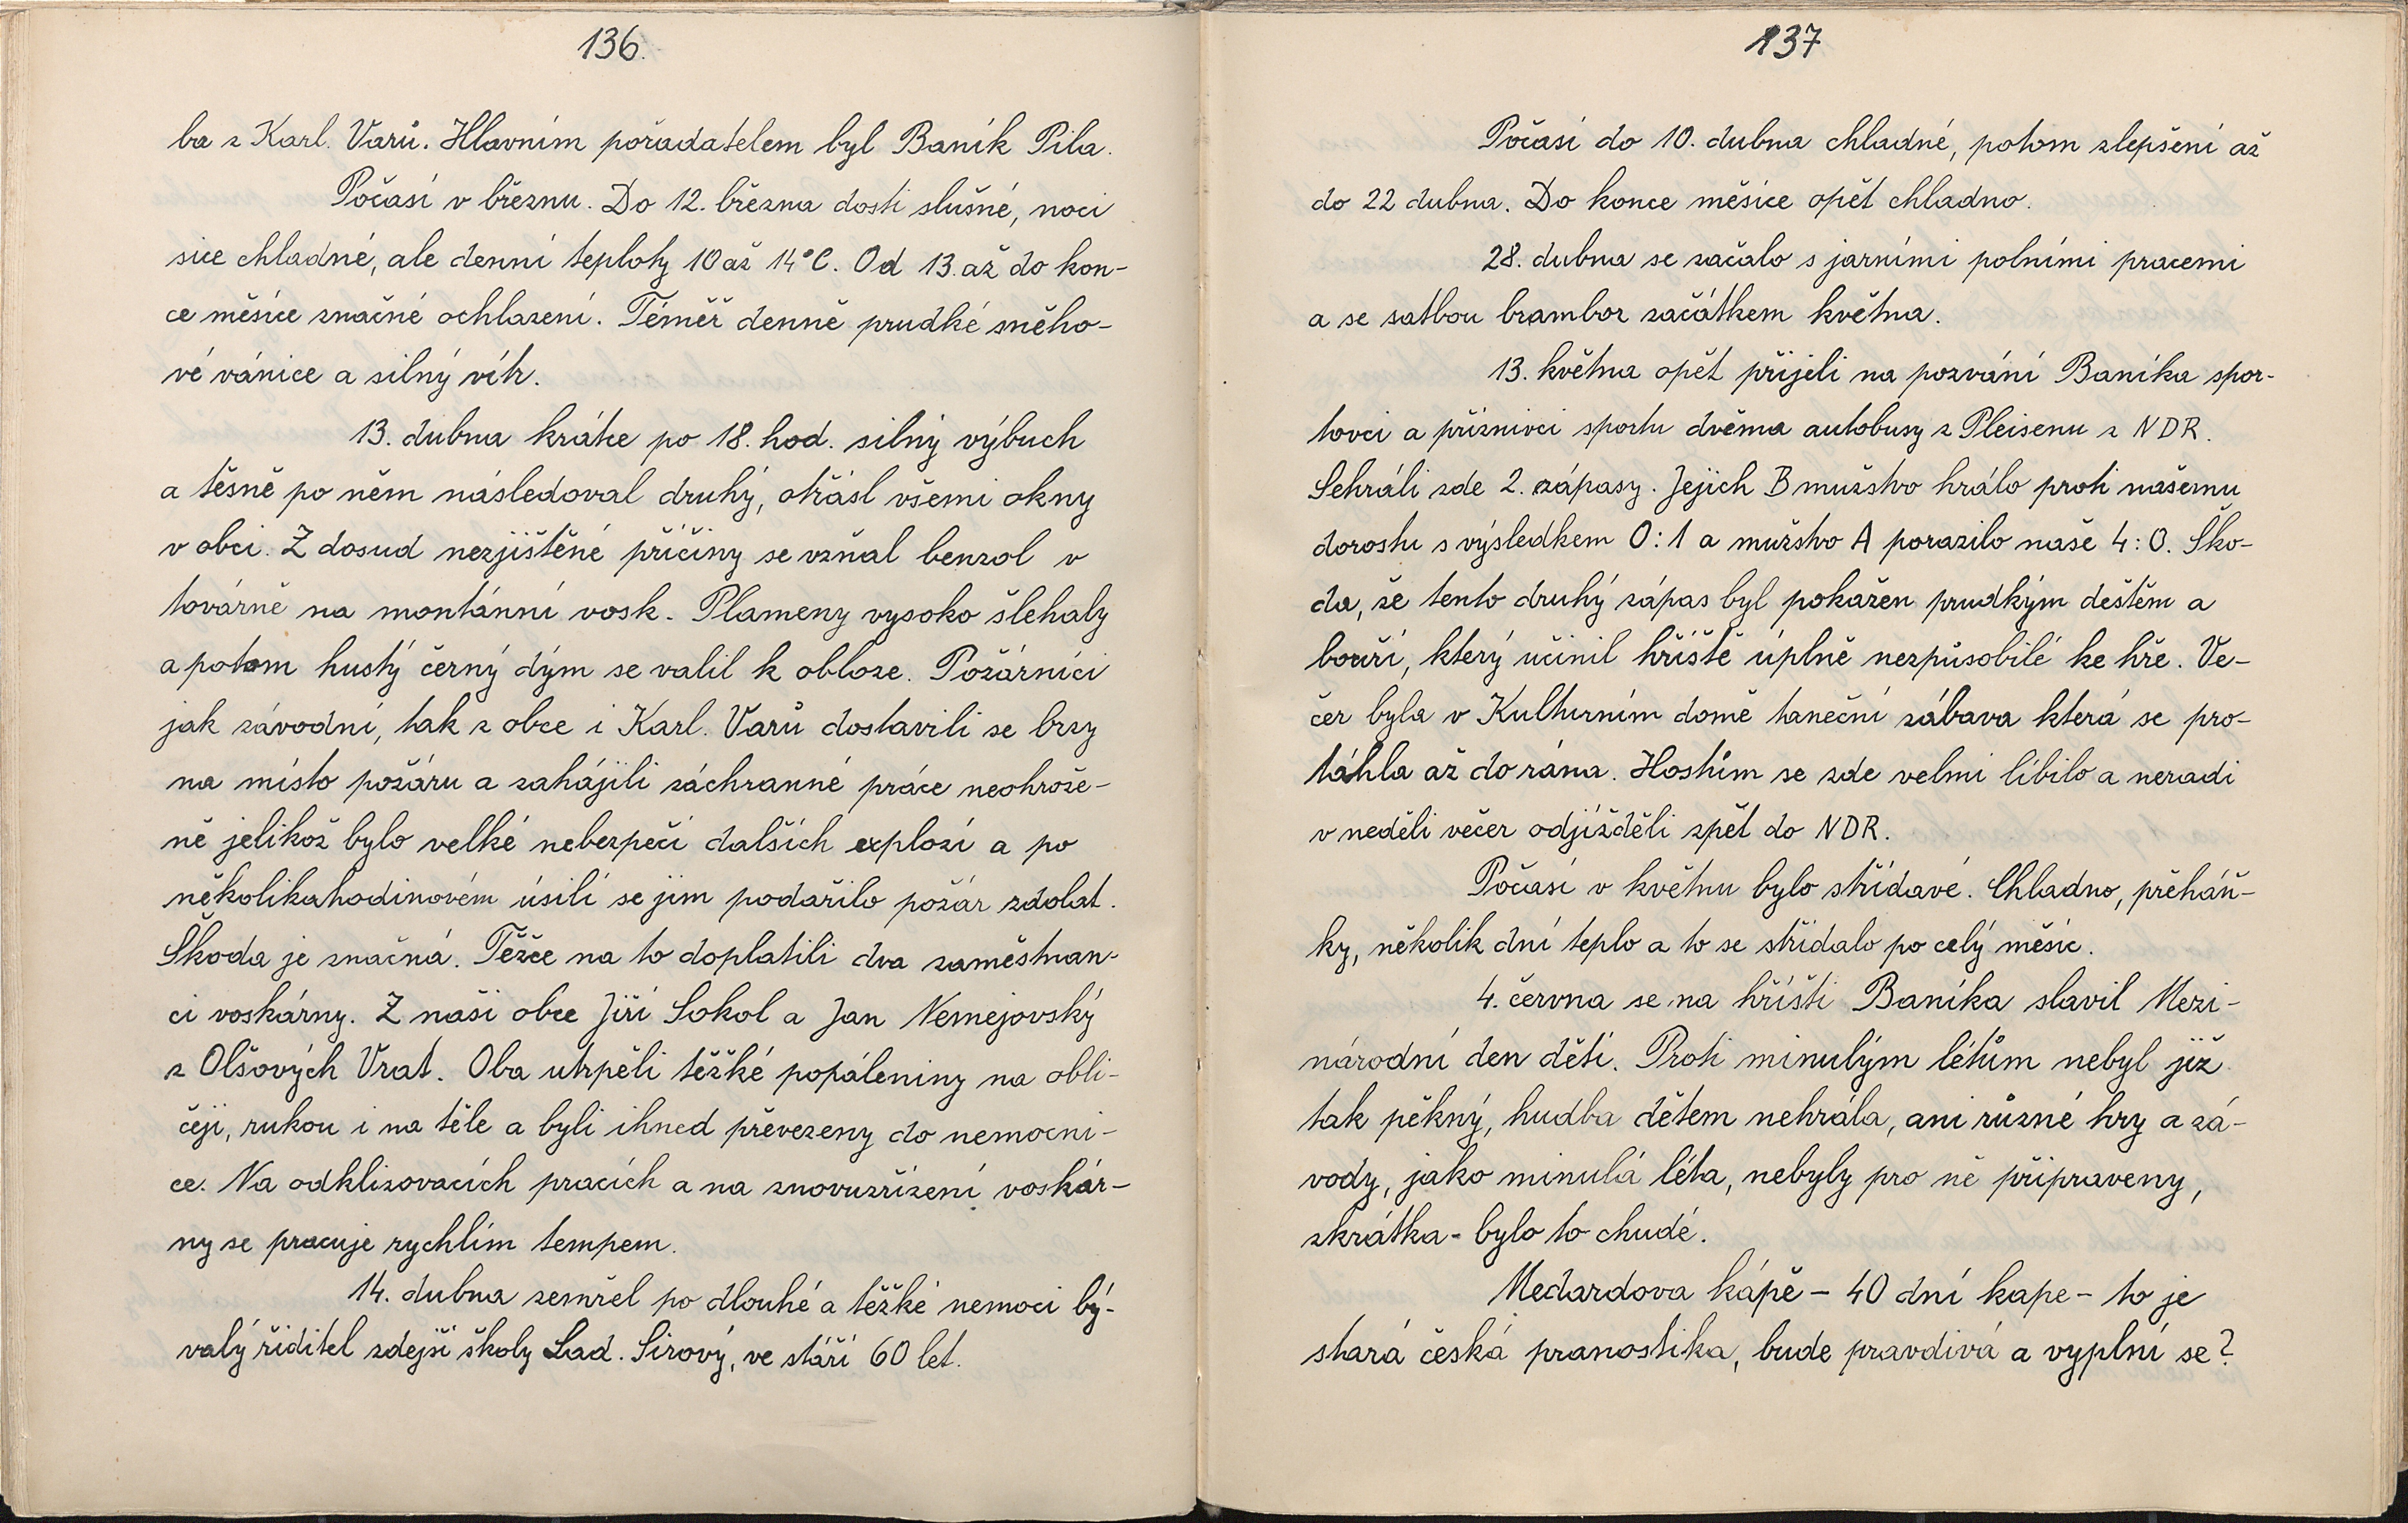 136.
ba z Karl. Varů. Hlavním pořadatelem byl Baník Pila.
Počasí v březnu. Do 12. března dosti slušné, noci
sice chladné, ale denní teploty 10 až 14°C. Od 13. až do kon-
ce měsíce značné ochlazení. Téměř denně prudké sněho-
vé vánice a silný vítr.
13. dubna krátce po 18. hod. silný výbuch
a těsně po něm následoval druhý, otřásl všemi okny
v obci. Z dosud nezjištěné příčiny se vzňal benzol v
továrně na montánní vosk. Plameny vysoko šlehaly
a potom hustý černý dým se valil k obloze. Požárníci
jak závodní, tak z obce i Karl. Varů dostavili se brzy
na místo požáru a zahájili záchranné práce neohrože-
ně jelikož bylo velké nebezpečí dalších explozí a po
několikahodinovém úsilí se jim podařilo požár zdolat.
Škoda je značná. Těžce na to doplatili dva zaměstnan-
ci voskárny. Z naši obce Jiří Sokol a Jan Nemejovský
z Olšových Vrat. Oba utrpěli těžké popáleniny na obli-
čeji, rukou i na těle a byli ihned převezeny do nemocni-
ce. Na odklizovacích pracích a na znovuzřízení voskár-
ny se pracuje rychlím tempem.
14. dubna zemřel po dlouhé a těžké nemoci bý-
valý řiditel zdejší školy Lad. Sirový, ve stáří 60 let.
137
Počasí do 10. dubna chladné, potom zlepšení až
do 22 dubna. Do konce měsíce opět chladno.
28. dubna se začalo s jarními polními pracemi
a se satbou brambor začátkem května.
13. května opět přijeli na pozvání Baníka spor-
tovci a příznivci sportu dvěma autobusy z Pleisenu z NDR.
Sehráli zde 2. zápasy. Jejich B mužstvo hrálo proti našemu
dorostu s výsledkem 0:1 a mužstvo A porazilo naše 4:0. Ško-
da, že tento druhý zápas byl pokažen prudkým deštěm a
bouří, který učinil hřiště úplně nezpůsobilé ke hře. Ve-
čer byla v Kulturním domě taneční zábava která se pro-
táhla až do rána. Hostům se zde velmi líbilo a neradi
v neděli večer odjížděli zpět do NDR.
Počasí v květnu bylo střídavé. Chladno, přeháň-
ky, několik dní teplo a to se střídalo po celý měsíc.
4. června se na hřišti Baníka slavil Mezi-
národní den dětí. Proti minulým létům nebyl již
tak pěkný, hudba dětem nehrála, ani různé hry a zá-
vody, jako minulá léta, nebyly pro ně připraveny,
zkrátka - bylo to chudé.
Medardova kápě - 40 dní kape - to je
stará česká pranostika, bude pravdivá a vyplní se?